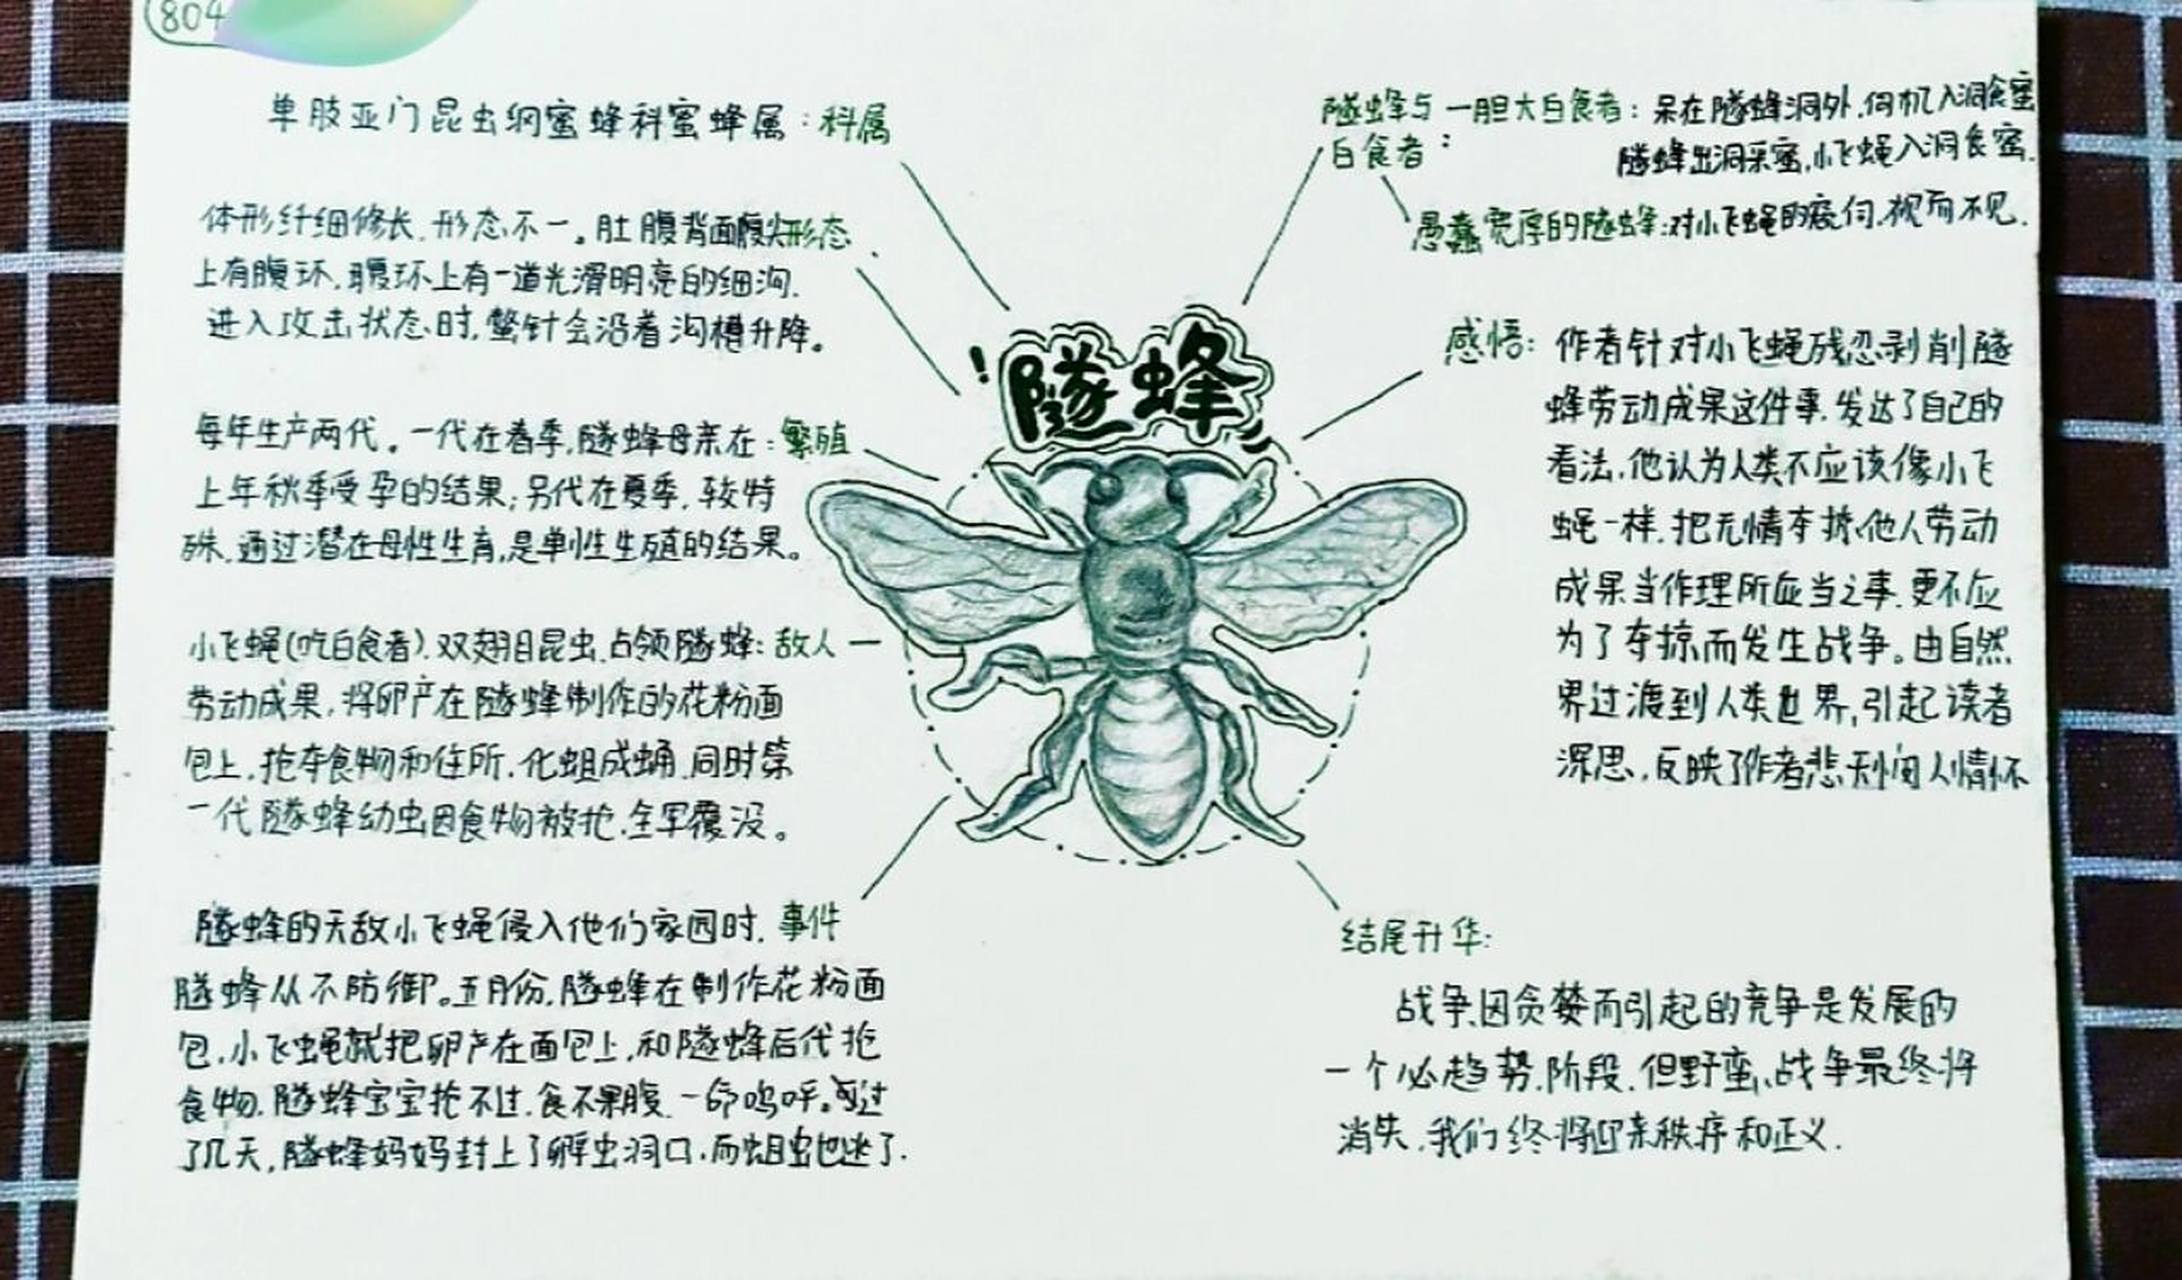 804
单肢亚门昆虫纲蜜蜂科蜜蜂属：科属
体形纤细修长，形态不一。肚腹背面腹尖形态
上有腹环，腹环上有一道光滑明亮的细沟.
进入攻击状态时，螫针会沿着沟槽升降。
每年生产两代。一代在春季，隧蜂母亲在：繁殖
上年秋季受孕的结果；另代在夏季，较特
殊，通过潜在母性生育，是单性生殖的结果。
小飞蝇(吃白食者)，双翅目昆虫，占领隧蜂：敌人
劳动成果，将卵产在隧蜂制作的花粉面
包上，抢夺食物和住所，化蛆成蛹，同时第
一代隧蜂幼虫因食物被抢，全军覆没。
隧蜂的天敌小飞蝇侵入他们家园时，事件
隧蜂从不防御。五月份，隧蜂在制作花粉面
包，小飞蝇就把卵产在面包上，和隧蜂后代抢
食物，隧蜂宝宝抢不过，食不果腹，一命呜呼。过
了几天，隧蜂妈妈封上了孵虫洞口，而蛆虫也逃了.
！隧蜂
隧蜂与一胆大白食者：呆在隧蜂洞外，伺机入洞食蜜
白食者：
隧蜂出洞采蜜，小飞蝇入洞食蜜.
愚蠢宽厚的隧蜂：对小飞蝇的窥伺，视而不见.
感悟：作者针对小飞蝇残忍剥削隧
蜂劳动成果这件事，发达了自己的
看法，他认为人类不应该像小飞
蝇一样，把无情夺掠他人劳动
成果当作理所应当之事，更不应
为了夺掠而发生战争。由自然
界过渡到人类世界，引起读者
深思，反映了作者悲天悯人情怀
结尾升华：
战争因贪婪而引起的竞争是发展的
一个必趋势，阶段，但野蛮、战争最终将
消失，我们终将迎来秩序和正义.